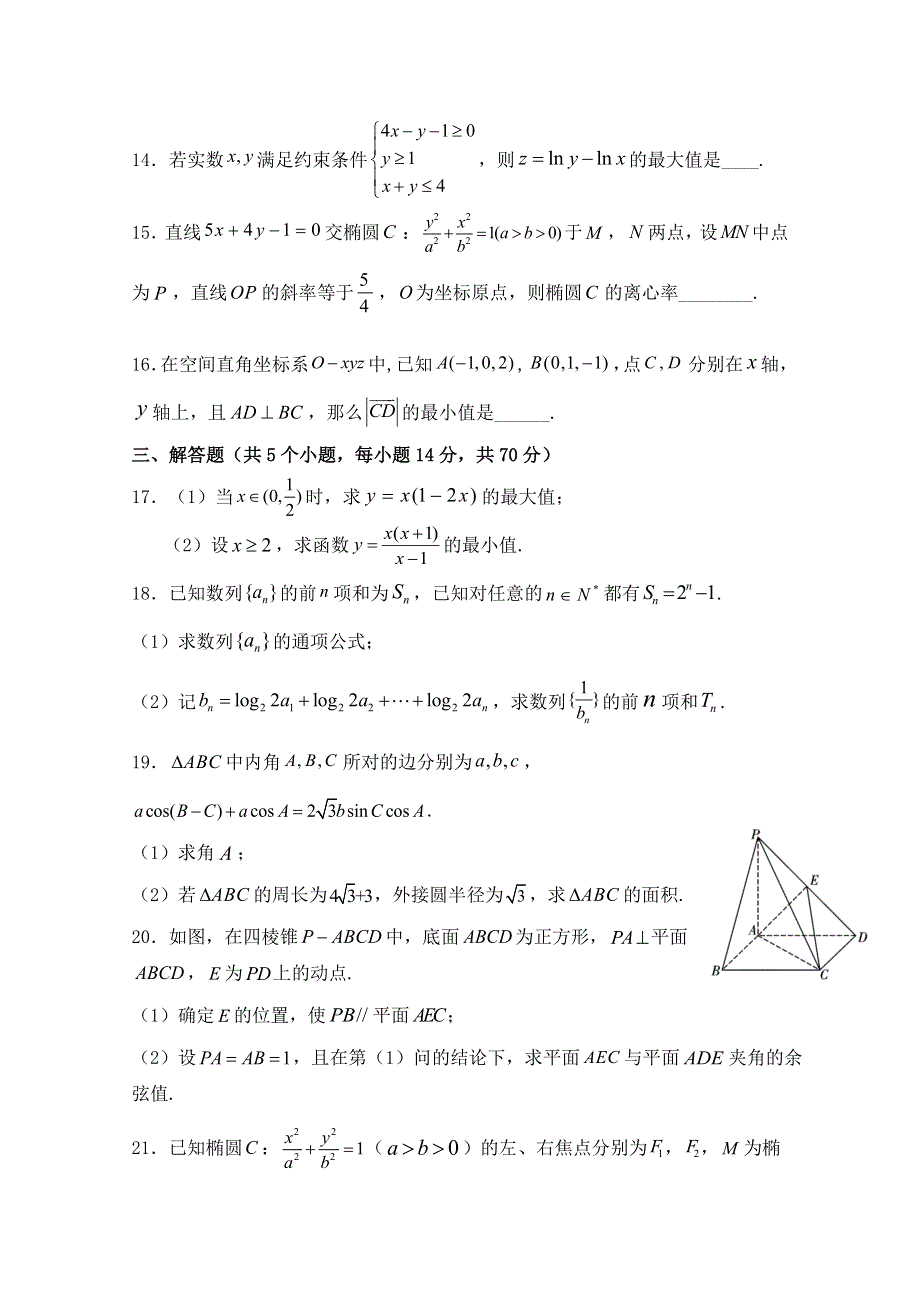 14. 若实数 x, y 满足约束条件 {4x−y−1≥0, y≥1, x+y≤4 , 则 z=ln y−ln x 的最大值是____.
15. 直线 5x+4y−1=0 交椭圆 C : y²/a²+x²/b²=1(a>b>0) 于 M , N 两点，设 MN 中点
为 P , 直线 OP 的斜率等于 5/4 , O 为坐标原点，则椭圆 C 的离心率________.
16.在空间直角坐标系 O−xyz 中,已知 A(−1,0,2), B(0,1,−1),点 C,D 分别在 x 轴，
y 轴上，且 AD⊥BC , 那么 |CD| 的最小值是______.
三、解答题（共 5 个小题，每小题 14 分，共 70 分）
17. （1）当 x∈(0,1/2) 时，求 y=x(1−2x) 的最大值；
（2）设 x≥2 , 求函数 y=x(x+1)/(x−1) 的最小值.
18. 已知数列 {aₙ} 的前 n 项和为 Sₙ , 已知对任意的 n∈N* 都有 Sₙ=2ⁿ−1.
（1）求数列 {aₙ} 的通项公式；
（2）记 bₙ=log₂2a₁+log₂2a₂+⋯+log₂2aₙ , 求数列 {1/bₙ} 的前 n 项和 Tₙ .
19. ΔABC 中内角 A,B,C 所对的边分别为 a,b,c ,
a cos(B−C)+a cos A=2√3b sin C cos A.
（1）求角 A ;
（2）若 ΔABC 的周长为 4√3+3, 外接圆半径为 √3 , 求 ΔABC 的面积.
P
E
A
D
B
C
20. 如图，在四棱锥 P−ABCD 中，底面 ABCD 为正方形， PA⊥平面
ABCD , E 为 PD 上的动点.
（1）确定 E 的位置，使 PB// 平面 AEC;
（2）设 PA=AB=1, 且在第（1）问的结论下，求平面 AEC 与平面 ADE 夹角的余
弦值.
21. 已知椭圆 C : x²/a²+y²/b²=1（a>b>0）的左、右焦点分别为 F₁, F₂, M 为椭